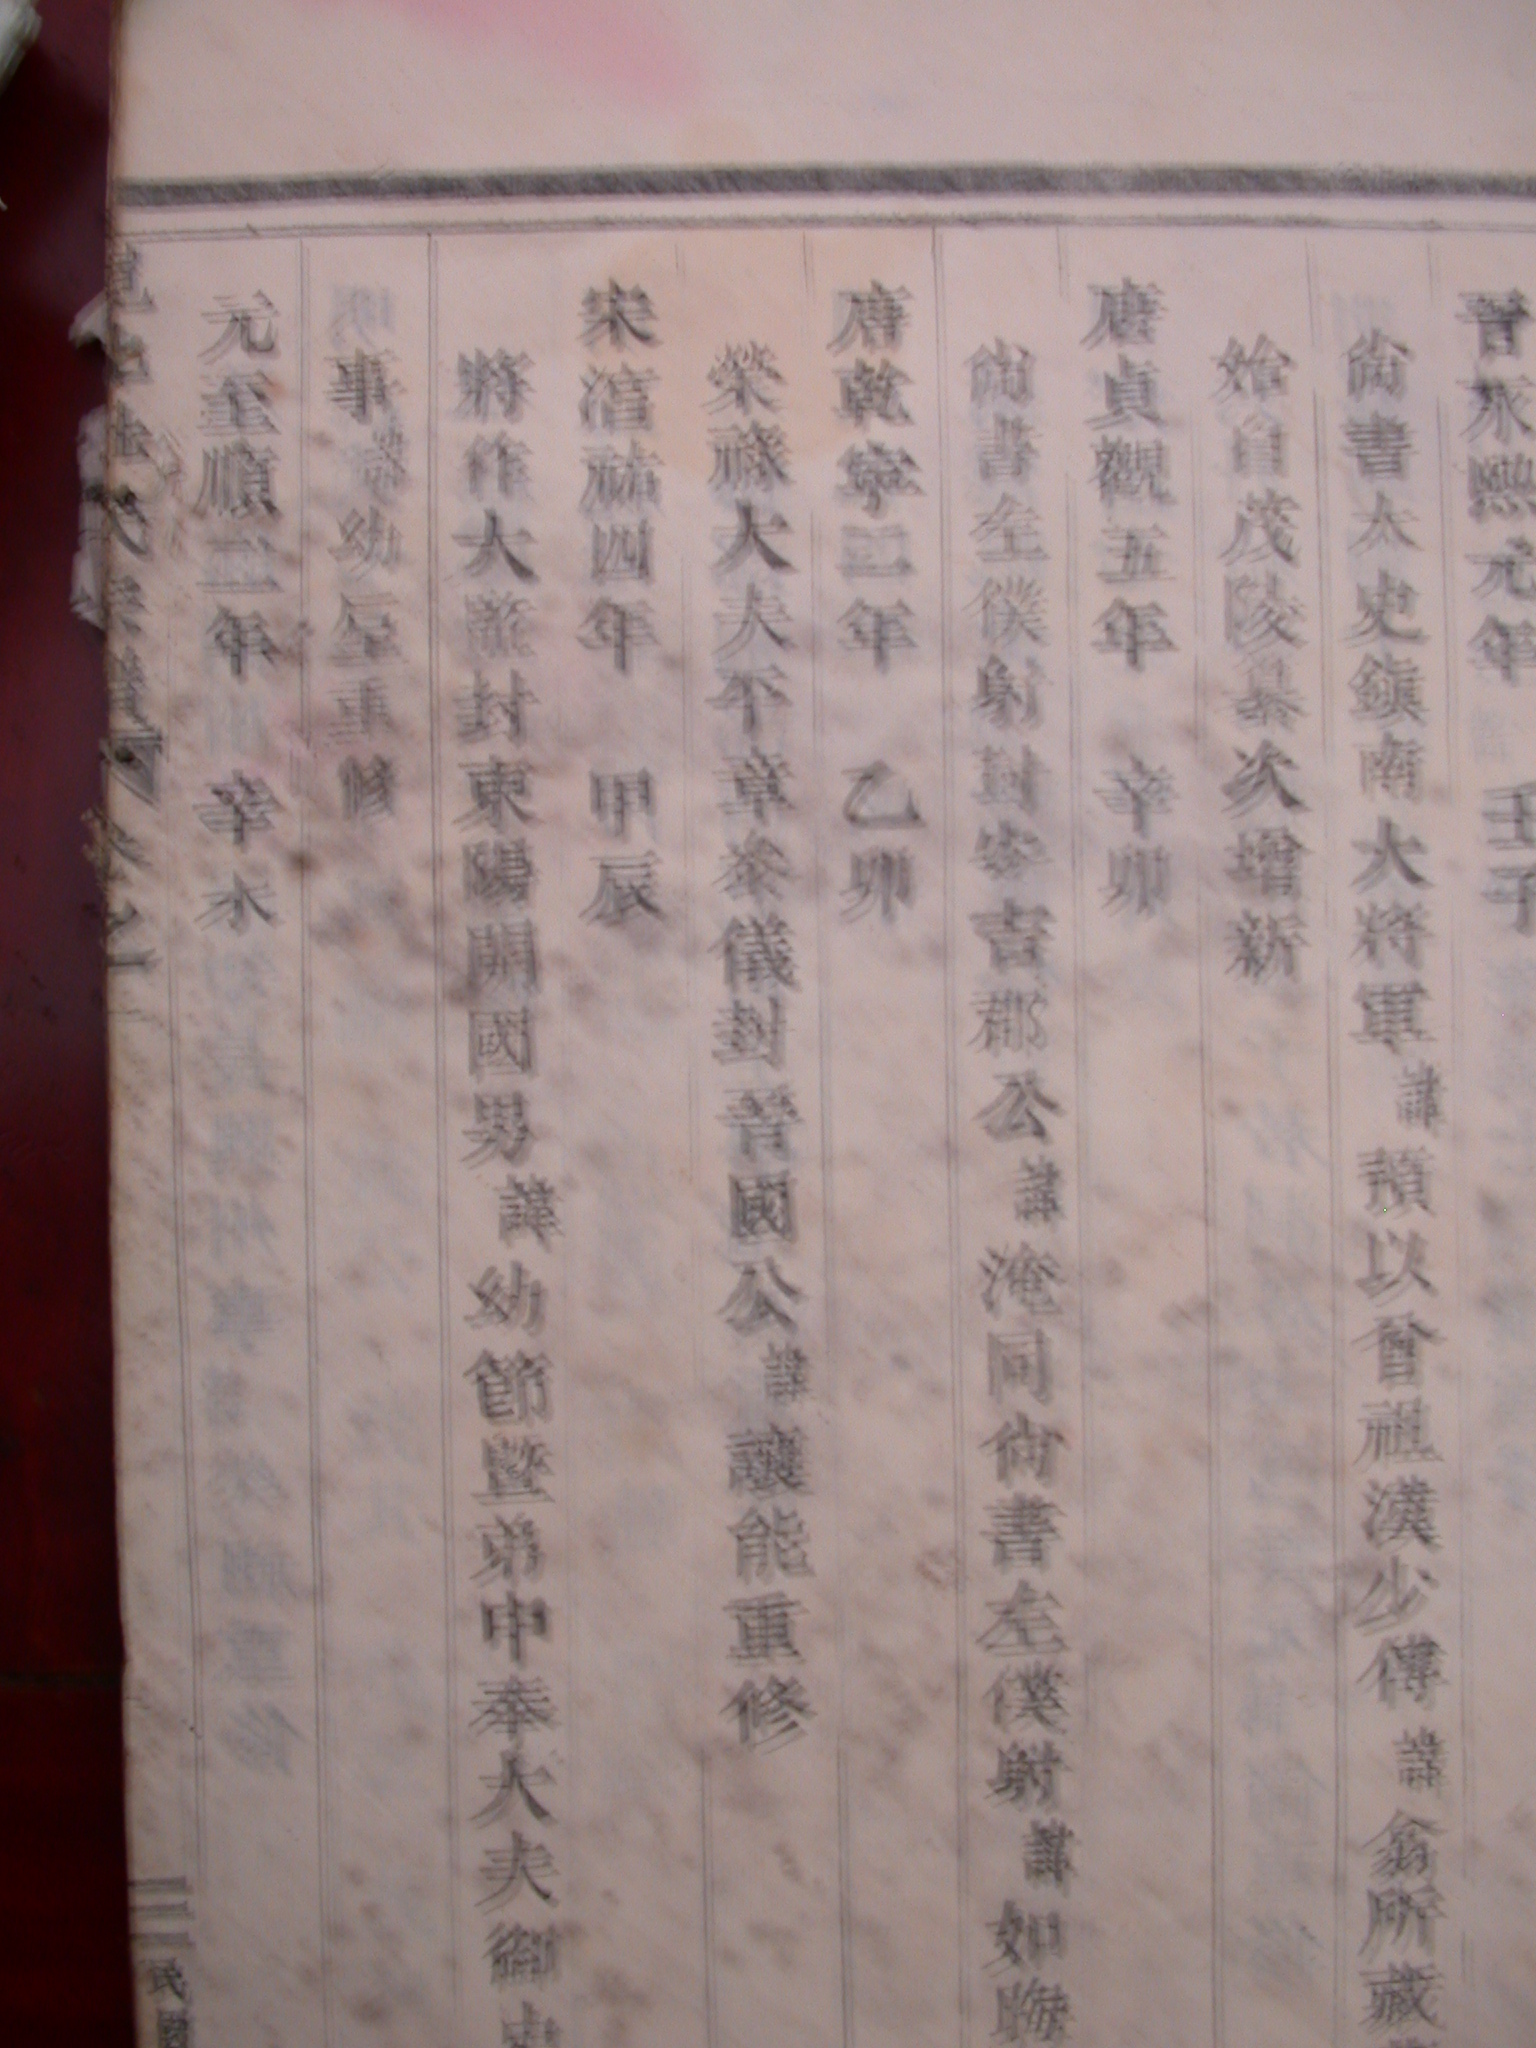 晉永熙元年　壬子
尙書太史鎮南大將軍諱預以曾祖漢少傅諱翁所藏
始自茂陵纂次增新
唐貞觀五年　辛卯
尙書左僕射封安吉郡公諱淹同尙書左僕射諱如晦
唐乾寧二年　乙卯
榮祿大夫平章叅儀封晉國公諱讓能重修
宋淳祐四年　甲辰
將作大監封東陽開國男諱幼節暨弟中奉大夫御史
事　幼　重修
元至順二年　辛未
氏宗譜　卷之一
民國